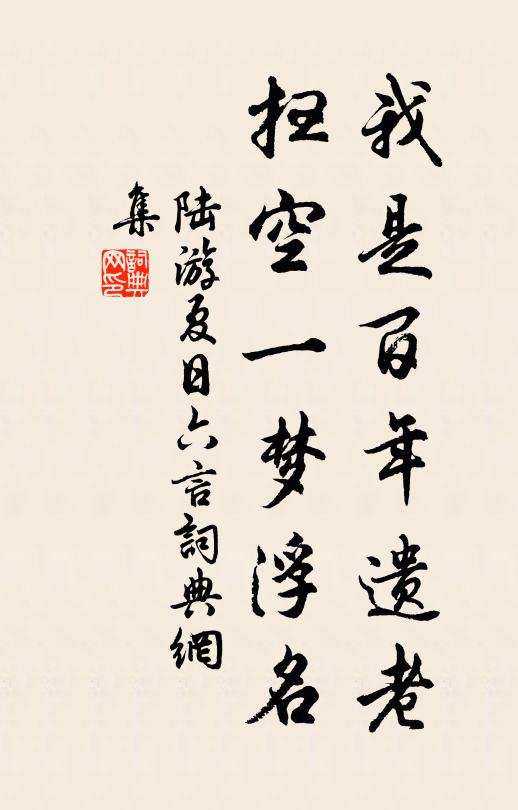 我是百年遗老
扫空一梦浮名
陆游夏日六言詞典網
集
詞典
网印